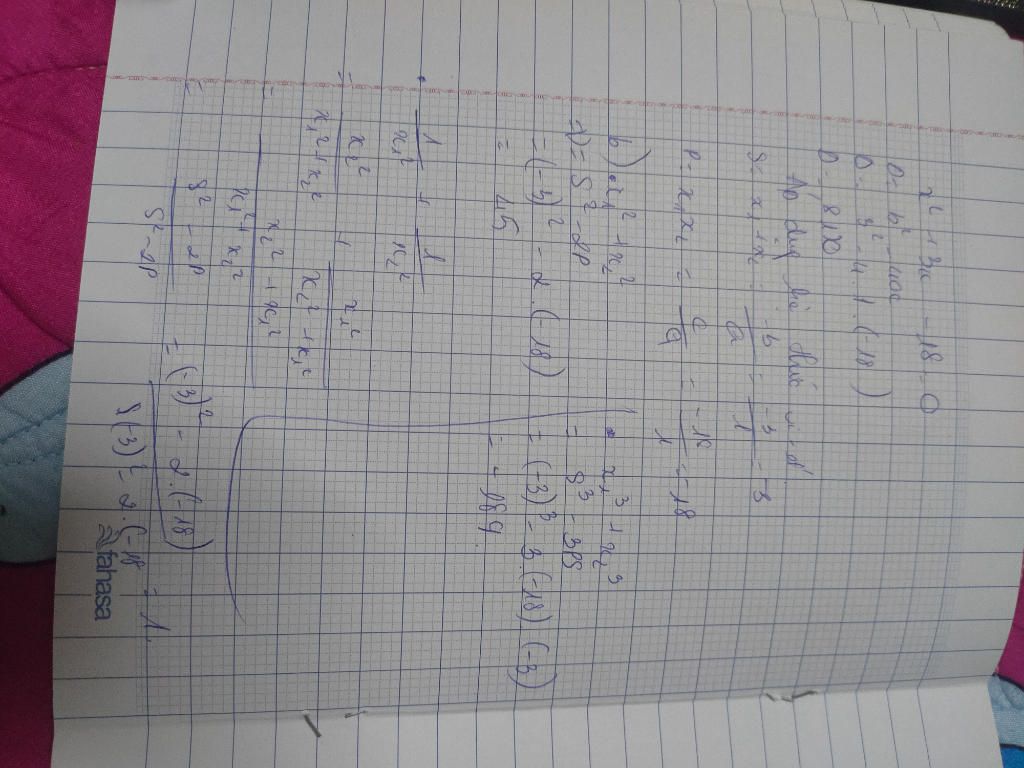 x² + 3x - 18 = 0
Δ = b² - 4ac
Δ = 3² - 4.1.(-18)
Δ = 81 > 0
Áp dụng hệ thức vi-ét
S = x₁ + x₂ = -b/a = -3/1 = -3
P = x₁x₂ = c/a = -18/1 = -18
b) x₁² + x₂²
= S² - 2P
= (-3)² - 2.(-18)
= 45
• x₁³ + x₂³
= S³ - 3PS
= (-3)³ - 3.(-18)(-3)
= -189.
• 1/x₁² + 1/x₂²
= x₂²/x₁²+x₂² + x₁²/x₂²+x₁²
= x₂² + x₁²/x₁² + x₂²
= S² - 2P/S² - 2P = (-3)² - 2.(-18)/(-3)² = 2.(-18 = 1.
fahasa